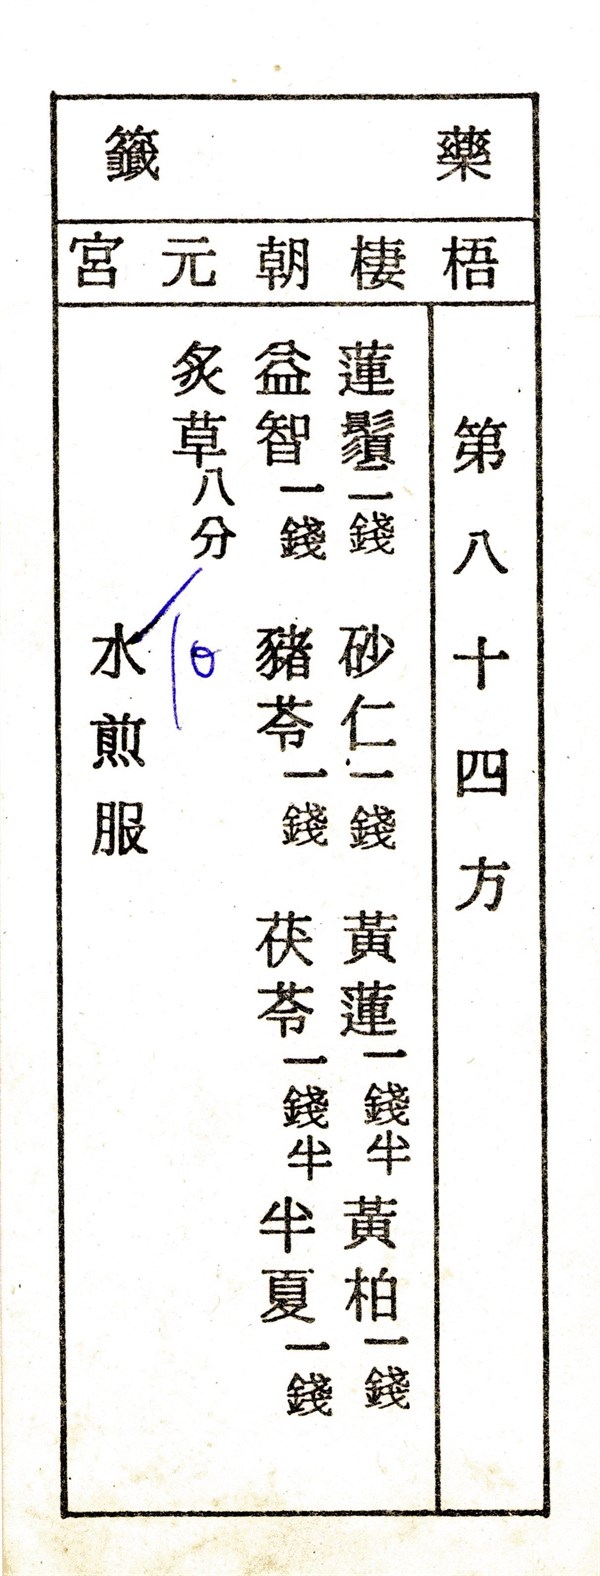 藥籤
梧棲朝元宮
第八十四方
蓮鬚二錢 砂仁一錢 黃蓮一錢半 黃柏一錢
益智一錢 豬苓一錢 茯苓一錢半 半夏一錢
炙草八分
水煎服